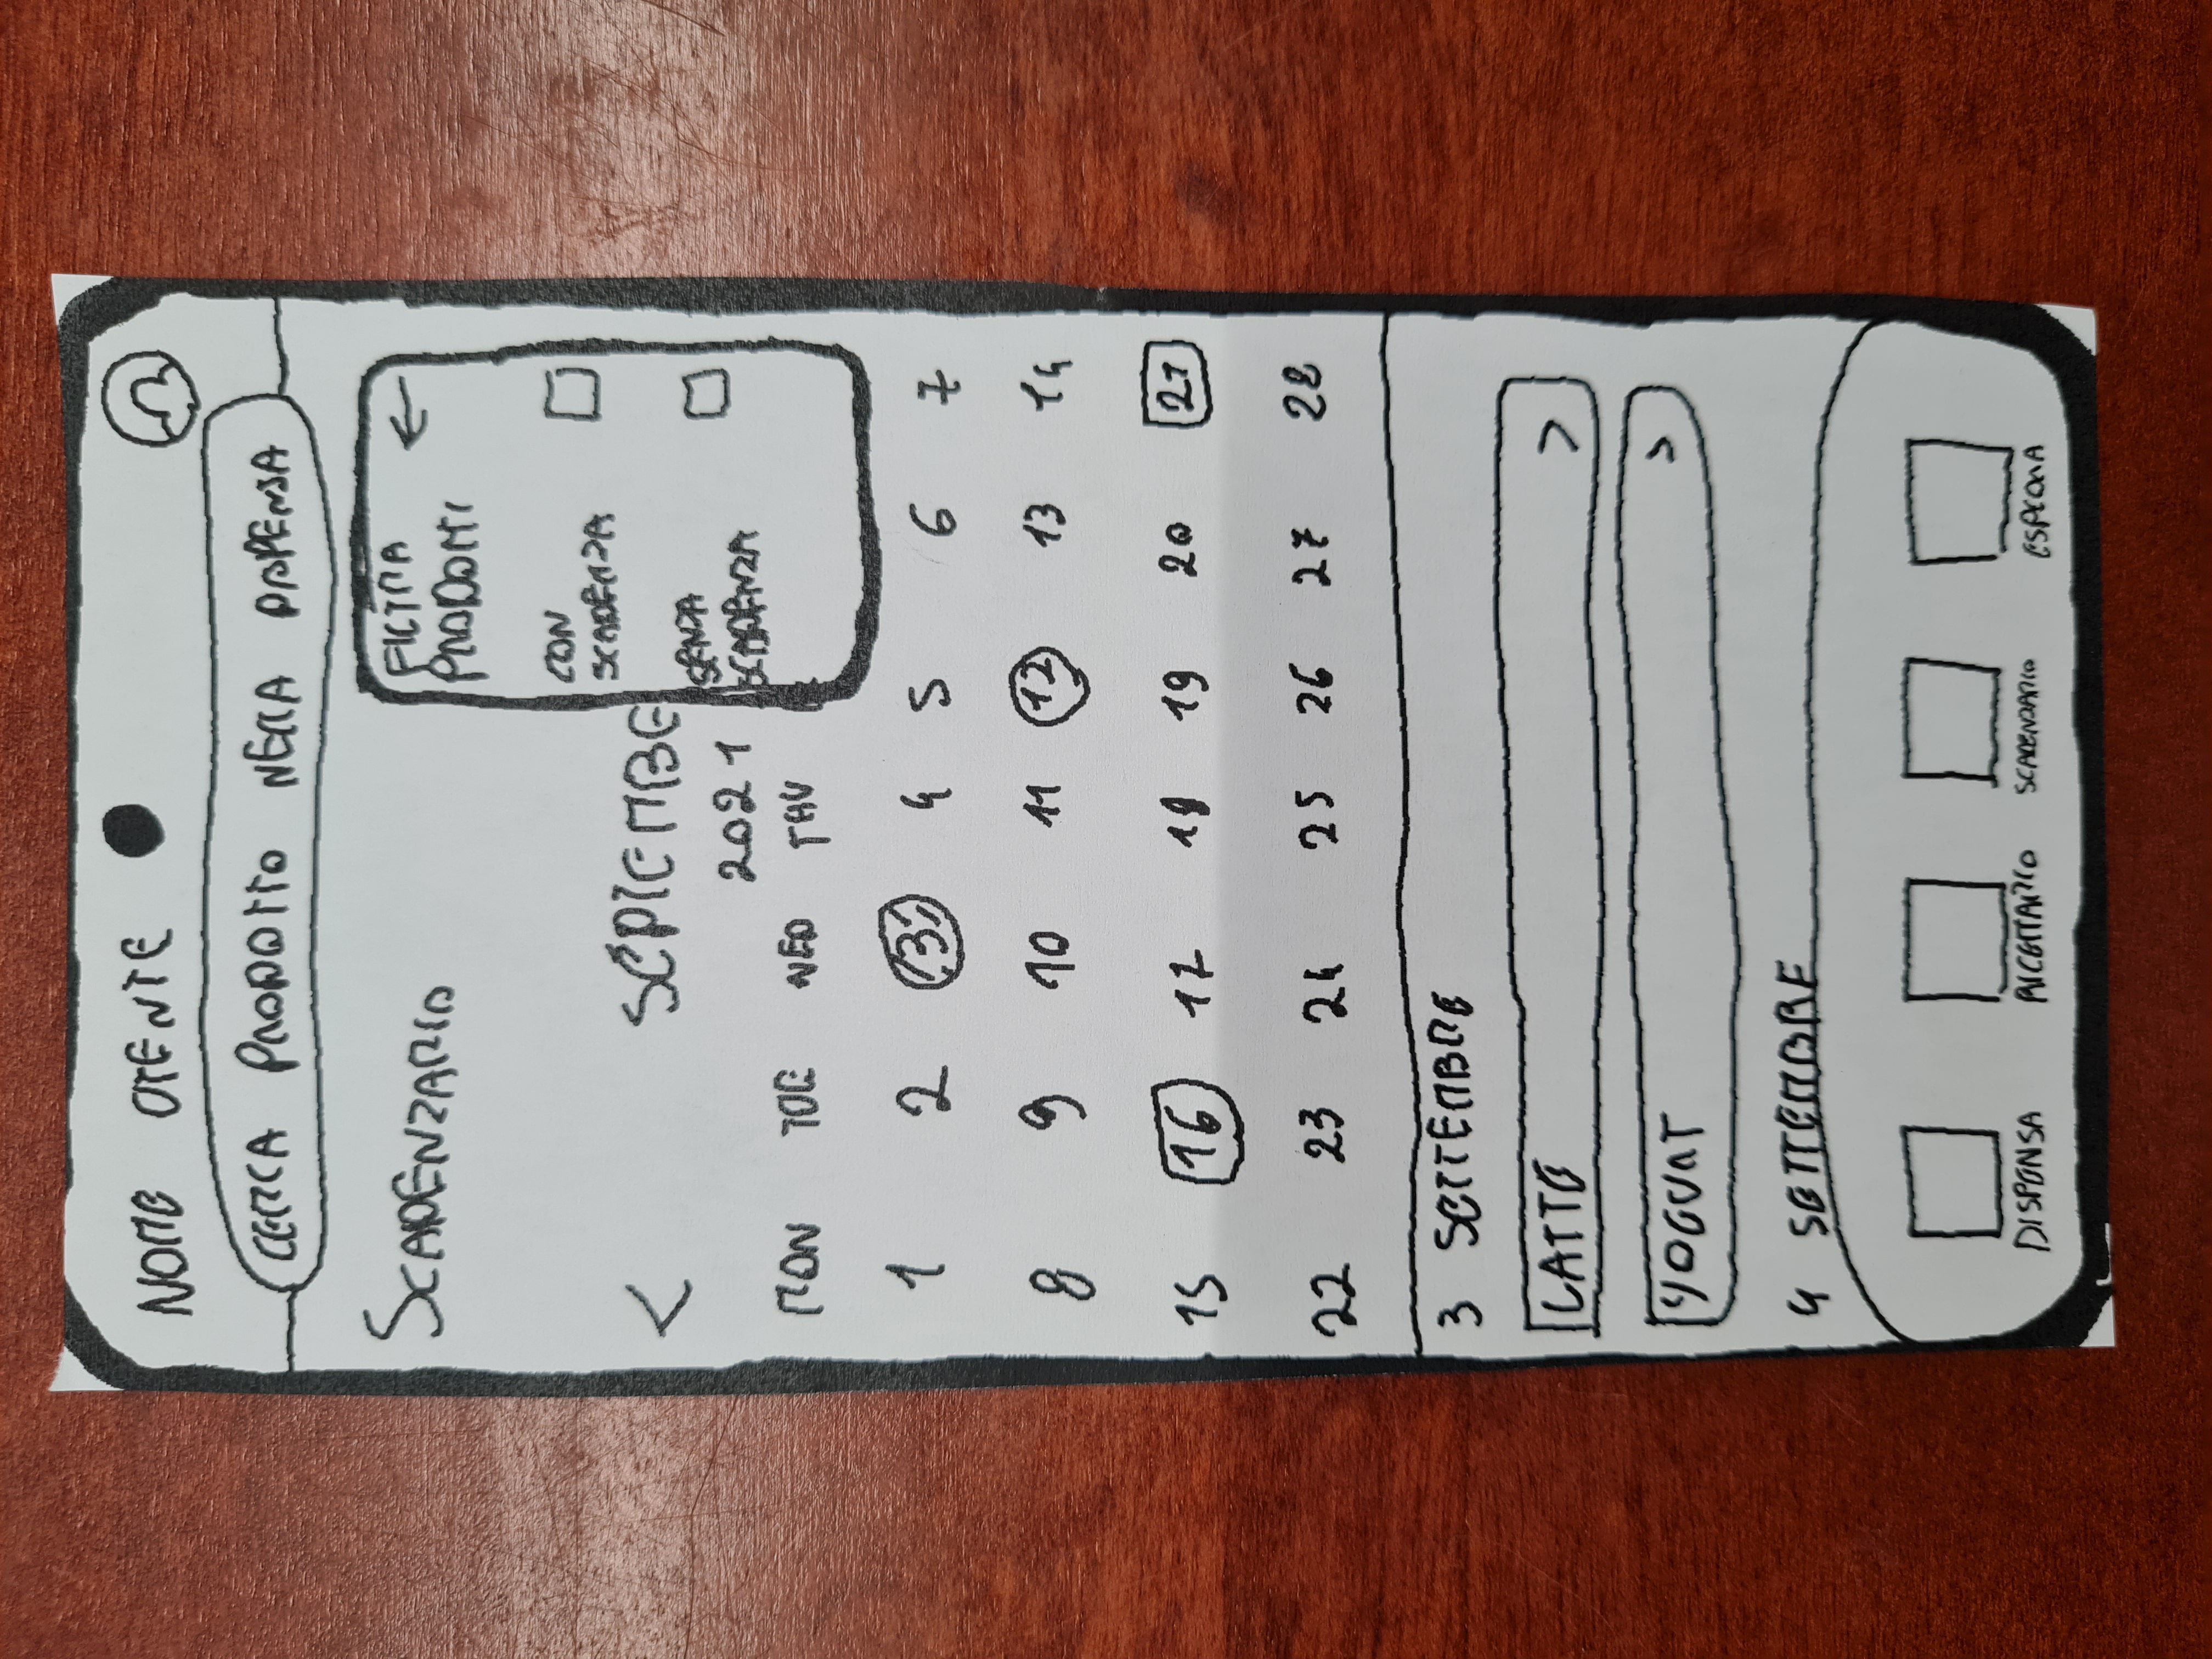 NOME UTENTE
CERCA PRODOTTO NELLA DISPENSA
SCADENZARIO
FILTRA
PRODOTTI
CON
SCADENZA
SENZA
SCADENZA
<
SEPTEMBE
2021
MON TUE WED THU
1 2 3 4 5 6 7
8 9 10 11 12 13 14
15 16 17 18 19 20 21
22 23 24 25 26 27 28
3 SETTEMBRE
LATTE >
YOGURT >
4 SETTEMBRE
DISPENSA RICETTARIO SCADENZARIO ESPLORA